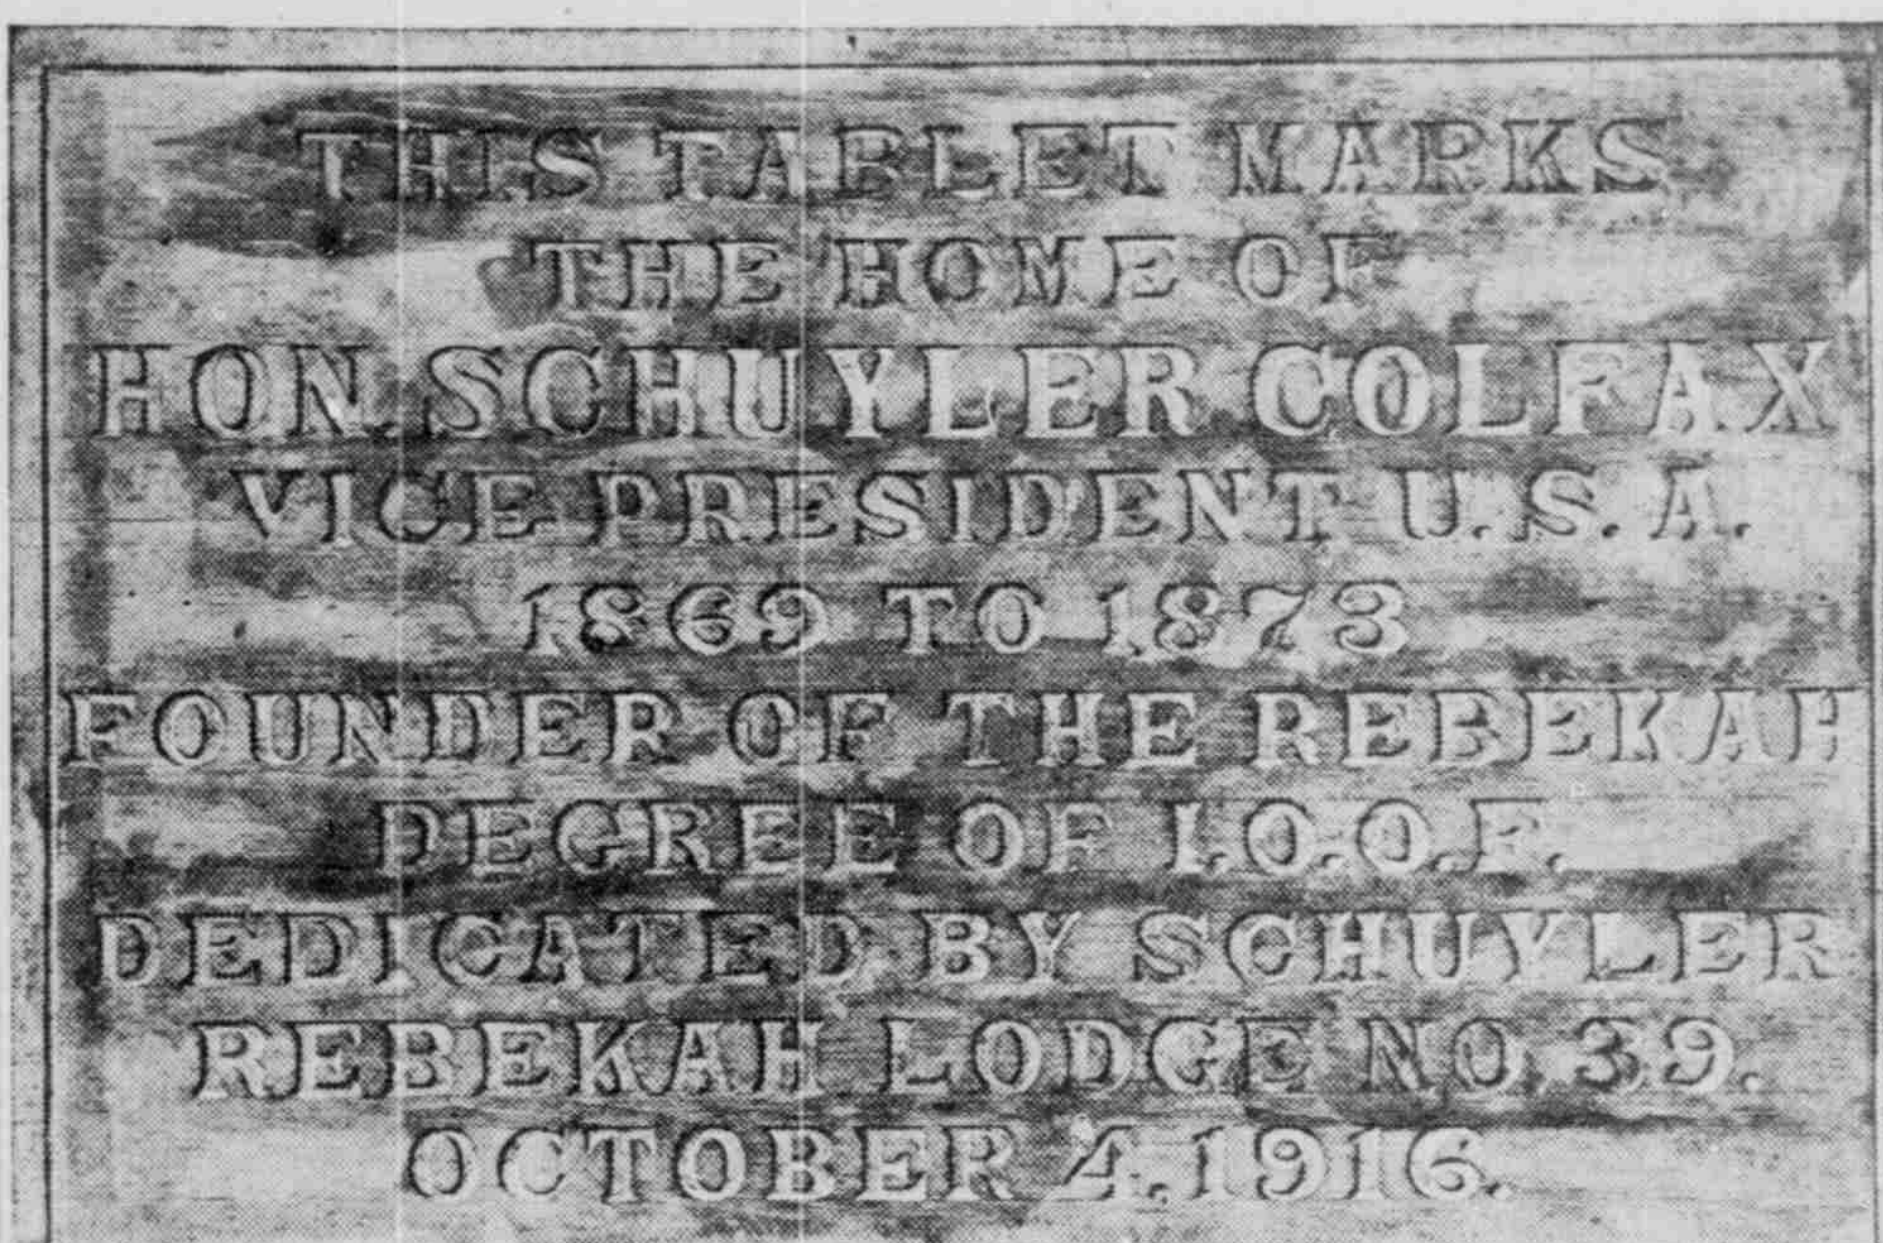 THIS TABLET MARKS
THE HOME OF
HON. SCHUYLER COLFAX
VICE PRESIDENT U.S.A.
1869 TO 1873
FOUNDER OF THE REBEKAH
DEGREE OF I.O.O.F.
DEDICATED BY SCHUYLER
REBEKAH LODGE NO. 39.
OCTOBER 4. 1916.